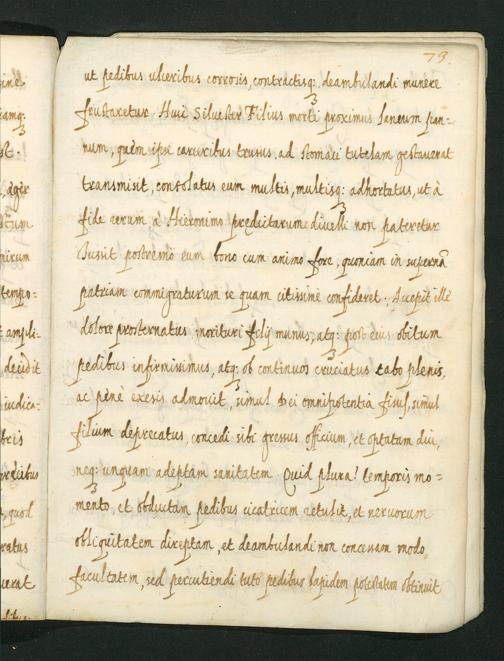 79.
ut pedibus ulceribus corrosis, contractisq; deambulandi munere
frustraretur. Huic Silvester Filius morti proximus laneum pan=
num, quem ipse carceribus trusus, ad stomaci tutelam gestaverat
transmisit, consolatus eum multis, multisq; adhortatus, ut à
fide rerum à Hieronimo predictarum divelli non pateretur
Iussit postremo eum bono cum animo fore, quoniam in supernã
patriam commigraturum se quam citissime confideret. Accepit ille
dolore prosternatus morituri filij munus, atq; post eius obitum
pedibus infirmissimus, atq; ob continuos cruciatus tabo plenis,
ac penè exesis admovit, simul Dei omnipotentia fisus, simul
filium deprecatus, concedi sibi gressus officium, et optatam diu,
neq; unquam adeptam sanitatem Quid plura? temporis mo=
mento, et obductam pedibus cicatricem retulit, et nervorum
obliquitatem direptam, et deambulandi non concessam modo,
facultatem, sed percutiendi tuto pedibus lapidem potestatem obtinuit
ine
iamq;
st.
, ager
pirum
tempo=
t ampli=
decidit
iudica=
ercibus
, quod
ratus
uerat